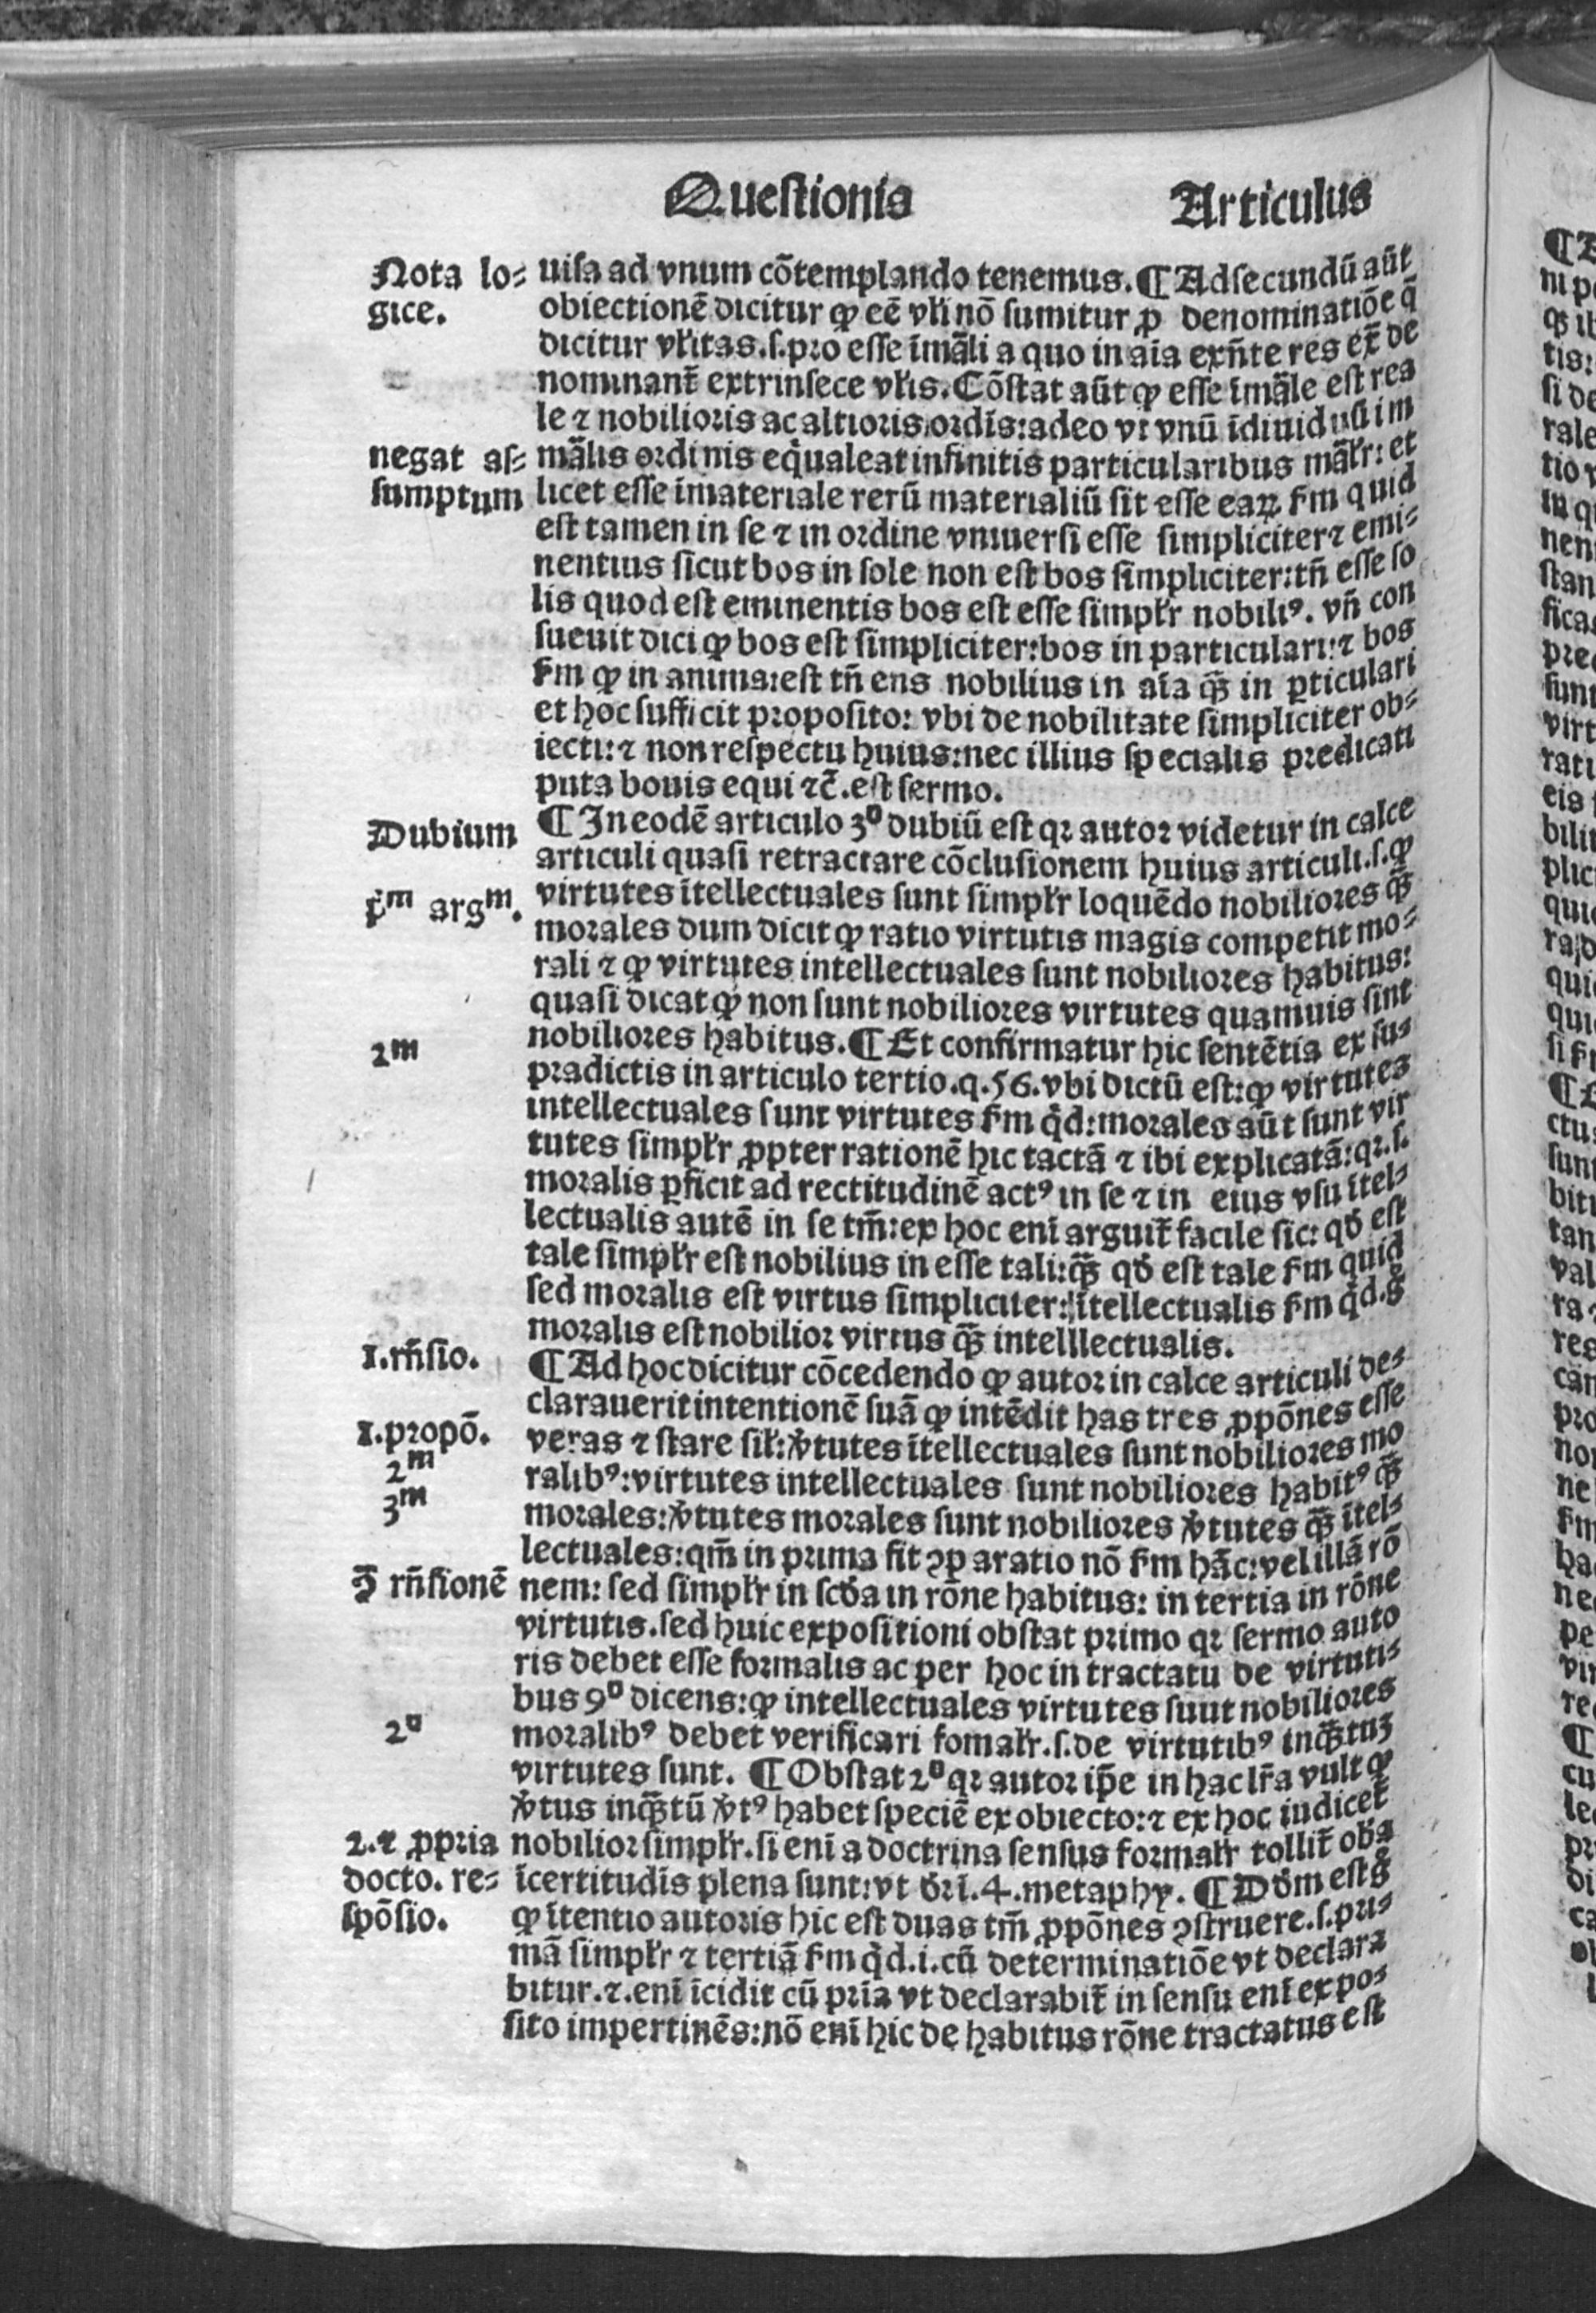 Questionis Articulus
Nota lo⸗
gice.
uisa ad vnum cõtemplando tenemus. ¶ Ad secundũ aũt
obiectionẽ dicitur ꝙ eẽ vłi nõ sumitur ꝓ denominatiõe q̃
dicitur vłitas.s.pro esse ĩmãli a quo in aĩa exñte res ex̃ de
nominant̃ extrinsece vłis. Cõstat aũt ꝙ esse ĩmãle est rea
le ⁊ nobilioris ac altioris ordĩs: adeo vt vnũ ĩdiuiduũ im
negat as⸗
sumptum
mãlis ordinis eq̃ualeat infinitis particularibus mãłr: et
licet esse ĩmateriale rerũ materialiũ sit esse eaꝝ fm quid
est tamen in se ⁊ in ordine vniuersi esse simpliciter ⁊ emi⸗
nentius sicut bos in sole non est bos simpliciter: tñ esse so
lis quod est eminentis bos est esse simpłr nobiliꝰ. vñ con
sueuit dici ꝙ bos est simpliciter: bos in particulari: ⁊ bos
fm ꝙ in anima: est tñ ens nobilius in aĩa q̃ꝫ in ꝑticulari
et hoc sufficit proposito: vbi de nobilitate simpliciter ob⸗
iecti: ⁊ non respectu huius: nec illius specialis predicati
puta bouis equi ⁊c̃. est sermo.
Dubium
¶ In eodẽ articulo 3º dubiũ est qꝛ autor videtur in calce
articuli quasi retractare cõclusionem huius articuli.s.ꝙ
pͫ argᵐ.
virtutes ĩtellectuales sunt simpłr loquẽdo nobiliores q̃ꝫ
morales dum dicit ꝙ ratio virtutis magis competit mo⸗
rali ⁊ ꝙ virtutes intellectuales sunt nobiliores habitus:
quasi dicat ꝙ non sunt nobiliores virtutes quamuis sint
2ᵐ
nobiliores habitus. ¶ Et confirmatur hic sentẽtia ex su⸗
pradictis in articulo tertio.q.56.vbi dictũ est: ꝙ virtutes
intellectuales sunt virtutes fm q̇d: morales aũt sunt vir
tutes simpłr ꝓpter rationẽ hic tactã ⁊ ibi explicatã: qꝛ.s.
moralis ꝑficit ad rectitudinẽ actꝰ in se ⁊ in eius vsu ĩtel⸗
lectualis autẽ in se tm̃: ex hoc enĩ arguit̃ facile sic: qđ est
tale simpłr est nobilius in esse tali: q̃ꝫ qđ est tale fm quid
sed moralis est virtus simpliciter: ĩtellectualis fm q̇d.g̊
moralis est nobilior virtus q̃ꝫ intelllectualis.
1.rñsio.
¶ Ad hoc dicitur cõcedendo ꝙ autor in calce articuli de⸗
clarauerit intentionẽ suã ꝙ intẽdit has tres ꝓpõnes esse
1.propõ.
veras ⁊ stare sił: v̾tutes ĩtellectuales sunt nobiliores mo
2ᵐ
ralibꝰ: virtutes intellectuales sunt nobiliores habitꝰ q̃ꝫ
3ᵐ
morales: v̾tutes morales sunt nobiliores v̾tutes q̃ꝫ ĩtel⸗
lectuales: qm̃ in prima fit ꝯparatio nõ fm hãc: vel illã rõ
ꝯ̃ rñsionẽ
nem: sed simpłr in scđa in rõne habitus: in tertia in rõne
virtutis. sed huic expositioni obstat primo qꝛ sermo auto
ris debet esse formalis ac per hoc in tractatu de virtuti⸗
bus 9º dicens: ꝙ intellectuales virtutes suut nobiliores
2º
moralibꝰ debet verificari fomałr.s.de virtutibꝰ inq̃ꝫtuʒ
virtutes sunt. ¶ Obstat 2º qꝛ autor ip̃e in hac lr̃a vult ꝙ
v̾tus inq̃ꝫtũ v̾tꝰ habet speciẽ ex obiecto: ⁊ ex hoc iudicet̃
2.⁊ ꝓpria
docto. re⸗
spõsio.
nobilior simpłr. si enĩ a doctrina sensus formałr tollit̃ oĩa
ĩcertitudĩs plena sunt: vt đrĩ.4.metaphy. ¶ Dđm est g̊
ꝙ ĩtentio autoris hic est duas tm̃ ꝓpõnes ꝯstruere.s.pri⸗
mã simpłr ⁊ tertiã fm q̇d.i.cũ determinatiõe vt declara
bitur.⁊.enĩ ĩcidit cũ pria vt declarabit̃ in sensu enĩ expo⸗
sito impertinẽs: nõ enĩ hic de habitus rõne tractatus est